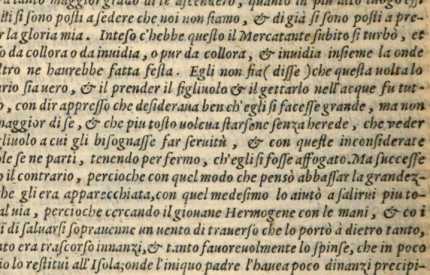 tanto maggior grado di te ascendero, quanto in più alto luogo esse
ti si sono posti a sedere che noi non siamo, & di già si sono posti a pre-
r la gloria mia. Inteso c'hebbe questo il Mercatante subito si turbò, et
o da collora o da inuidia, o pur da collora, & inuidia insieme la onde
ltro ne haurebbe fatta festa. Egli non fia (disse) che questa uolta lo
ario sia uero, & il prender il figliuolo & il gettarlo nell'acque fu tut-
o, con dir appresso che desideraua ben ch'egli si facesse grande, ma non
maggior di se, & che piu tosto uoleua starsene senza herede, che veder
gliuolo a cui gli bisognasse far seruitù, & con queste inconsiderate
ole se ne parti, tenendo per fermo, ch'egli si fosse affogato. Ma successe
o il contrario, percioche con quel modo che pensò abbassar la grandez-
he gli era apparecchiata, con quel medesimo lo aiutò a salirui piu to-
al uia, percioche cercando il giouane Hermogene con le mani, & co i
di di saluarsi soprauenne un uento di trauerso che lo portò a dietro tanto,
ato era trascorso innanzi, & tanto fauoreuolmente lo spinse, che in poco
io lo restituì all'Isola; onde l'iniquo padre l'hauea poco dinanzi precipi-